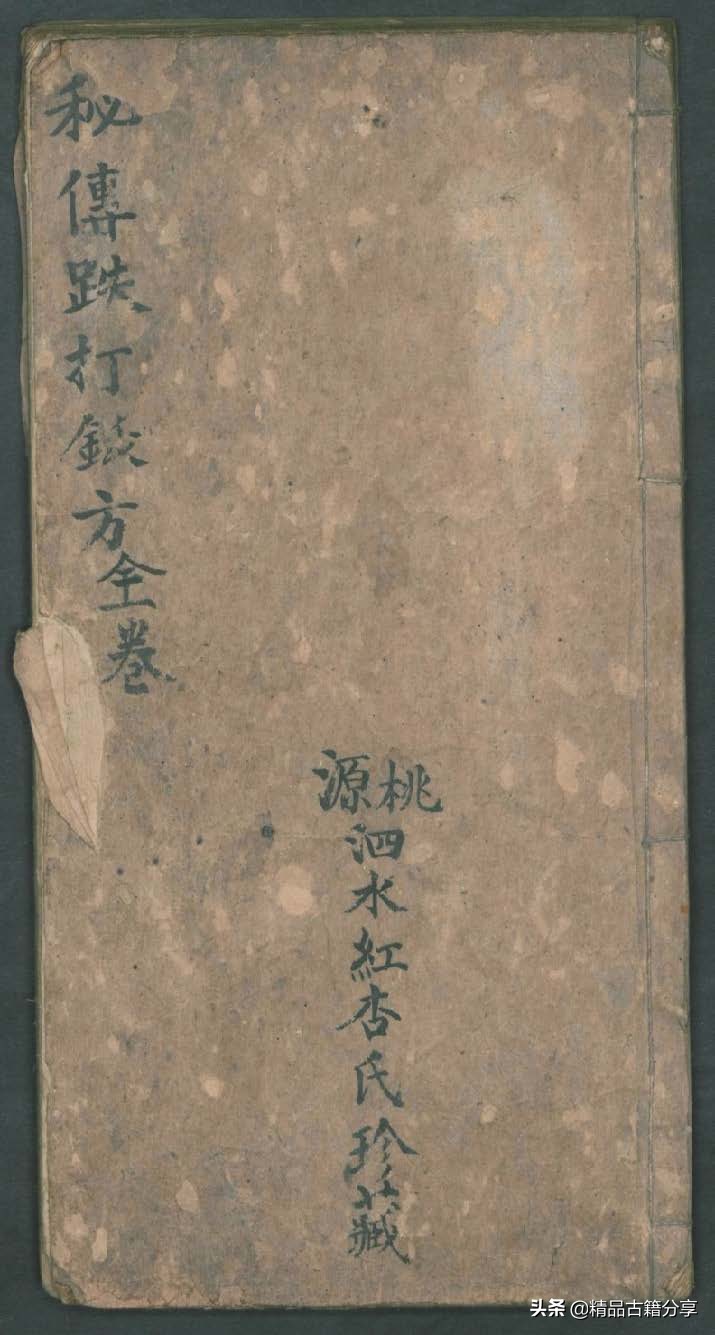 桃源
泗水紅杏氏珍藏
秘傳跌打方全卷
头条 @精品古籍分享